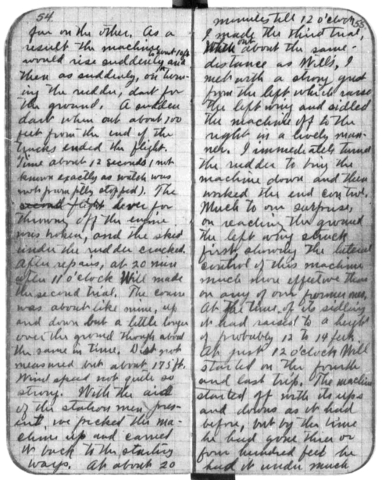 54
far on the other. As a
result the machine
would rise suddenly to about 10 ft. and
then as suddenly, on turn-
ing the rudder, dart for
the ground. A sudden
dart when out about 100
feet from the end of the
tracks ended the flight.
Time about 12 seconds (not
known exactly as watch was
not promptly stopped). The
flight lever for
throwing off the engine
was broken, and the skid
under the rudder cracked.
After repairs, at 20 min
after 11 o'clock Will made
the second trial. The course
was about like mine, up
and down but a little longer
over the ground though about
the same in time. Dist not
measured but about 175 ft.
Wind speed not quite so
strong. With the aid
of the station men pres-
ent, we picked the ma-
chine up and carried
it back to the starting
ways. At about 20
55
minutes till 12 o'clock
I made the third trial,
When out about the same
distance as Will's, I
met with a strong gust
from the left which raised
the left wing and sidled
the machine off to the
right in a lively man-
ner. I immediately turned
the rudder to bring the
machine down and then
worked the end control.
Much to our surprise,
on reaching the ground
the left wing struck
first, showing the lateral
control of this machine
much more effective than
on any of our former ones.
At the time of its sidling
it had raised to a height
of probably 12 to 14 feet.
At just 12 o'clock Will
started on the fourth
and last trip. The machine
started off with its ups
and downs as it had
before, but by the time
he had gone three or
four hundred feet he
had it under much